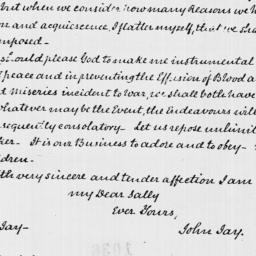 but when we consider how many Reasons we h
on and acquiescence, I flatter myself, that we sha
mposed—
should please God to make me instrumental
f peace and in preventing the Effusion of Blood a
d miseries incident to War, we shall both have
whatever may be the Event, the Endeavours will
sequently consolatory Let us repose unlimit
ker. It is our Business to adore and to obey—
dren—
ith very sincere and tender affection I am
my Dear Sally
Ever Yours,
Jay— John Jay.